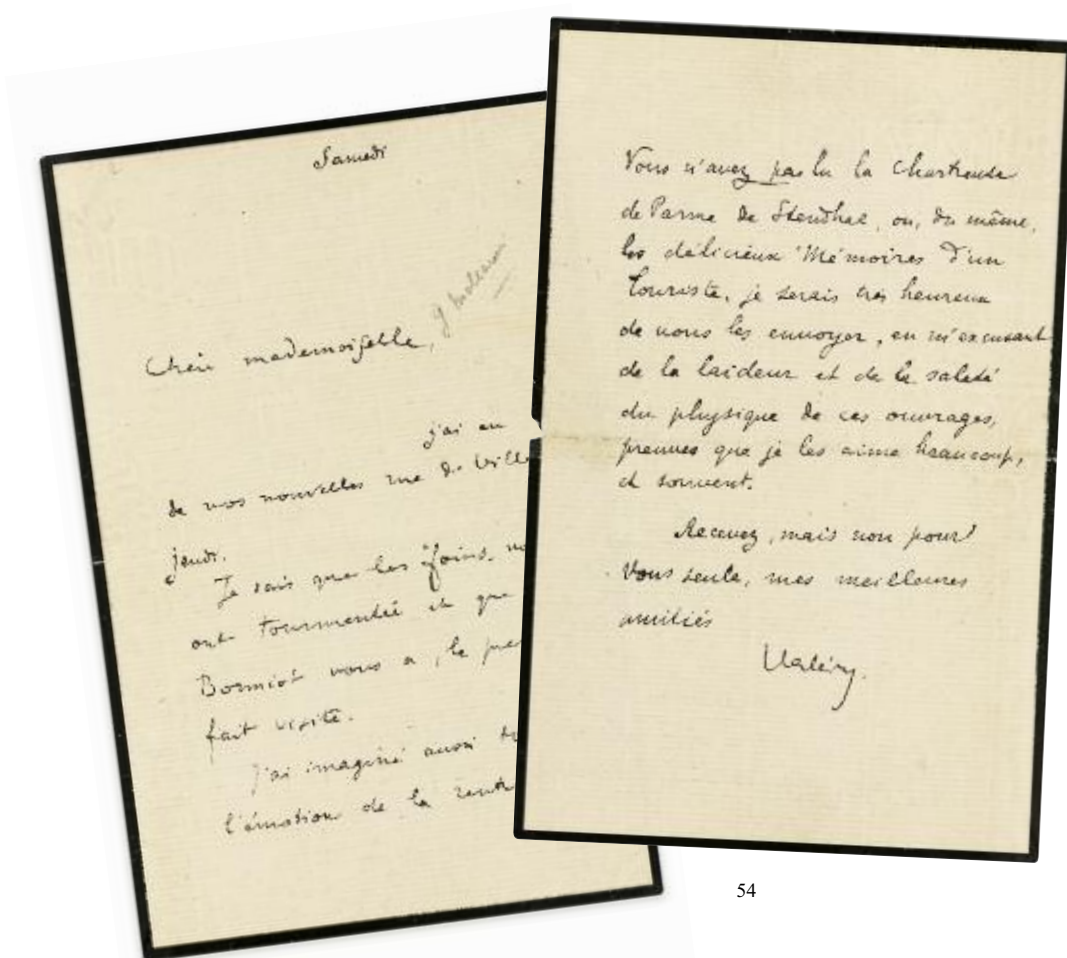 Samedi
Chère mademoiselle,
j'ai eu
de vos nouvelles rue de Ville
jeudi.
Je sais que les foins
ont tourmentée et que
vous a, le
fait visite.
J'ai imaginé aussi
l'émotion de la
Vous n'avez pas lu la Chartreuse
de Parme de Stendhal, ou, du même,
les délicieux Mémoires d'un
Touriste, je serais très heureux
de vous les envoyer, en m'excusant
de la laideur et de la saleté
du physique de ces ouvrages,
preuves que je les aime beaucoup,
et souvent.
Recevez, mais non pour
vous seule, mes meilleures
amitiés
Valéry.
54